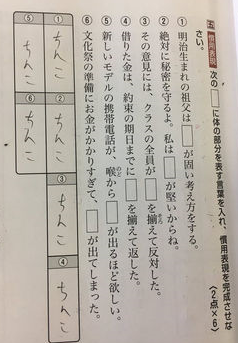 五 慣用表現 次の□に体の部分を表す言葉を入れ、慣用表現を完成させな
さい。 〈2点×6〉
① 明治生まれの祖父は□が固い考え方をする。
② 絶対に秘密を守るよ。私は□が堅いからね。
③ その意見には、クラスの全員が□を揃えて反対した。
④ 借りた金は、約束の期日までに□を揃えて返した。
⑤ 新しいモデルの携帯電話が、喉から□が出るほど欲しい。
⑥ 文化祭の準備にお金がかかりすぎて、□が出てしまった。
① ちんこ
② ちんこ
③ ちんこ
④ ちんこ
⑤ ちんこ
⑥ ちんこ